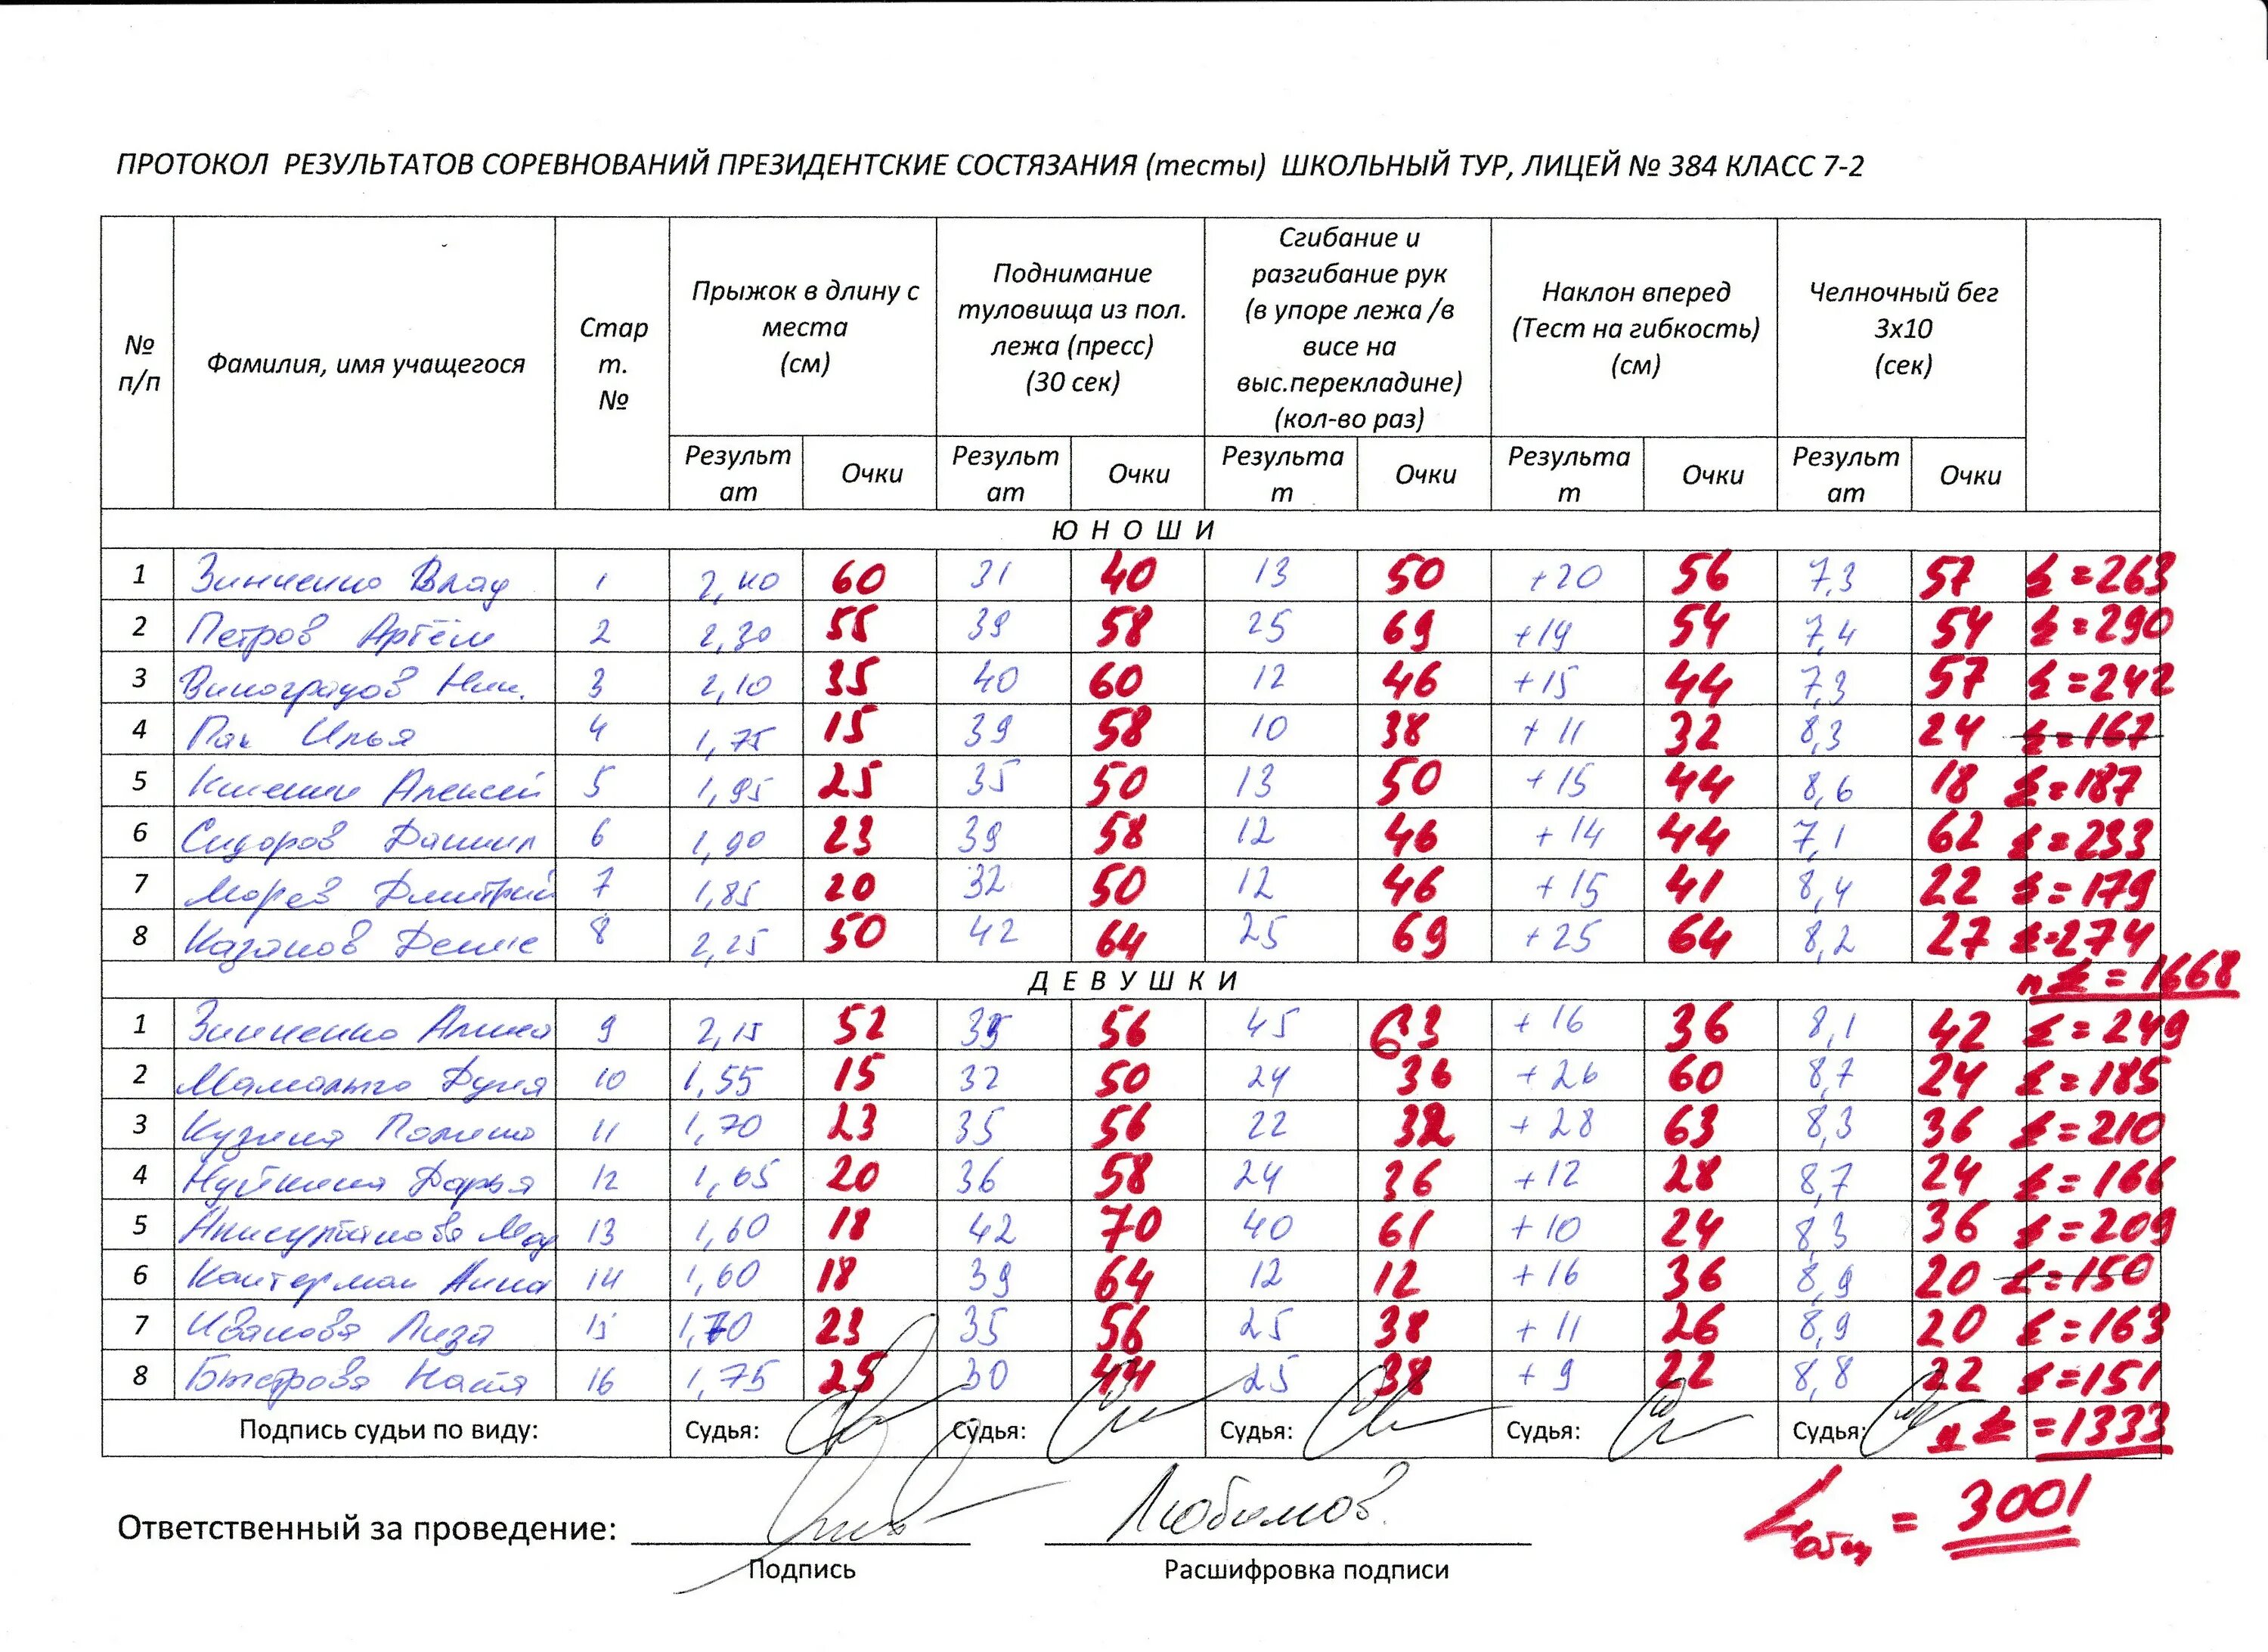 ПРОТОКОЛ РЕЗУЛЬТАТОВ СОРЕВНОВАНИЙ ПРЕЗИДЕНТСКИЕ СОСТЯЗАНИЯ (тесты) ШКОЛЬНЫЙ ТУР, ЛИЦЕЙ № 384 КЛАСС 7-2
№ п/п
Фамилия, имя учащегося
Стар т. №
Прыжок в длину с места (см)
Поднимание туловища из пол. лежа (пресс) (30 сек)
Сгибание и разгибание рук (в упоре лежа /в висе на выс.перекладине) (кол-во раз)
Наклон вперед (Тест на гибкость) (см)
Челночный бег 3х10 (сек)
Результ ат Очки Результ ат Очки Результа т Очки Результа т Очки Результ ат Очки
Ю Н О Ш И
1 Зинченко Влад 1 2,40 60 31 40 13 50 +20 56 7,3 57 Σ=263
2 Петров Артём 2 2,30 55 39 58 25 69 +19 54 7,4 54 Σ=290
3 Виноградов Ник. 3 2,10 35 40 60 12 46 +15 44 7,3 57 Σ=242
4 Пак Илья 4 1,75 15 39 58 10 38 +11 32 8,3 24 Σ=167
5 Алексей 5 1,95 25 35 50 13 50 +15 44 8,6 18 Σ=187
6 Сидоров Даниил 6 1,90 23 39 58 12 46 +14 44 7,1 62 Σ=233
7 Морев Дмитрий 7 1,85 20 32 50 12 46 +15 41 8,4 22 Σ=179
8 Казаков Денис 8 2,25 50 42 64 25 69 +25 64 8,2 27 Σ=274
Σ=1668
Д Е В У Ш К И
1 Зинченко Алиса 9 2,15 52 35 56 45 63 +16 36 8,1 42 Σ=249
2 10 1,55 15 32 50 24 36 +26 60 8,7 24 Σ=185
3 Кузина Полина 11 1,70 23 35 56 22 32 +28 63 8,3 36 Σ=210
4 Дарья 12 1,65 20 36 58 24 36 +12 28 8,7 24 Σ=166
5 13 1,60 18 42 70 40 61 +10 24 8,3 36 Σ=209
6 Кантерман Анна 14 1,60 18 39 64 12 12 +16 36 8,9 20 Σ=150
7 Иванова Лиза 15 1,70 23 35 56 25 38 +11 26 8,9 20 Σ=163
8 Быстрова Настя 16 1,75 25 30 44 25 38 +9 22 8,8 22 Σ=151
Подпись судьи по виду: Судья: Судья: Судья: Судья: Судья: Σ=1333
Ответственный за проведение: Любимов. Σобщ = 3001
Подпись Расшифровка подписи